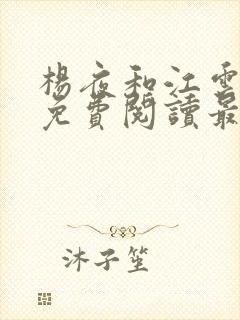 楊夜和江雲
免費閱讀最
沐子笙